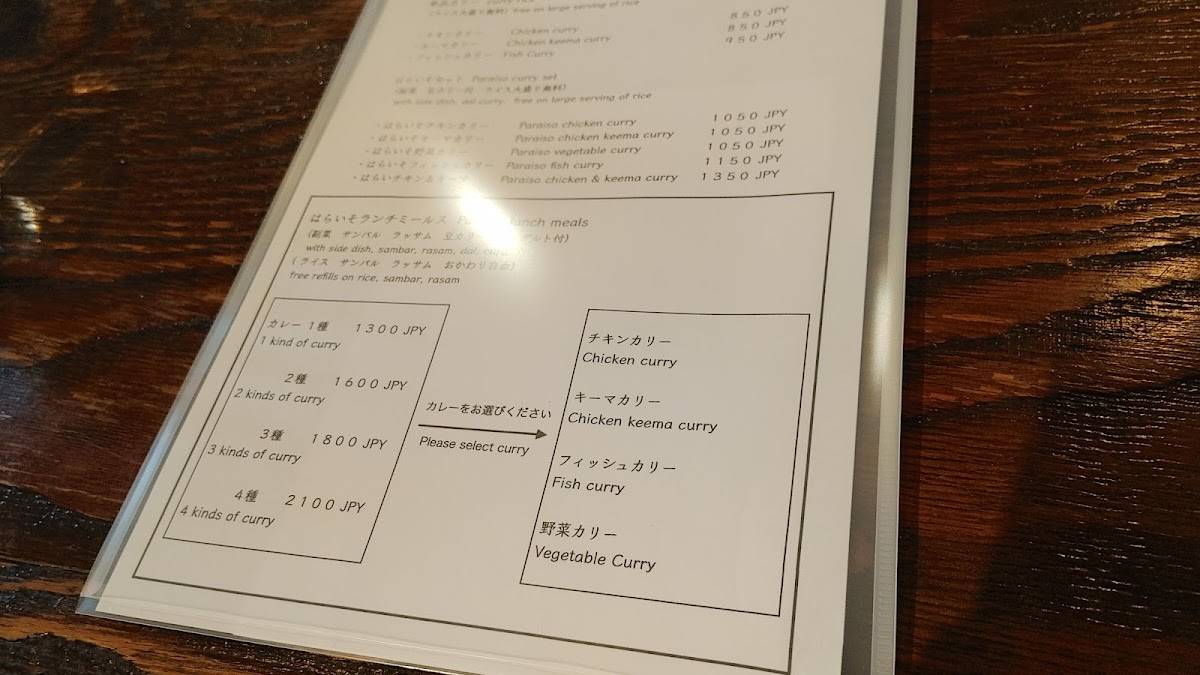 free on large serving of rice
850 JPY
チキンカリー Chicken curry 850 JPY
キーマカリー Chicken keema curry 950 JPY
フィッシュカリー Fish Curry
はらいそセット Paraiso curry set
with side dish, dal curry, free on large serving of rice
・はらいそチキンカリー Paraiso chicken curry 1050 JPY
・はらいそキーマカリー Paraiso chicken keema curry 1050 JPY
・はらいそ野菜カリー Paraiso vegetable curry 1050 JPY
・はらいそフィッシュカリー Paraiso fish curry 1150 JPY
・はらいそチキン&キーマ Paraiso chicken & keema curry 1350 JPY
はらいそランチミールス lunch meals
(副菜 サンバル ラッサム 豆カリー
with side dish, sambar, rasam, dal,
(ライス サンバル ラッサム おかわり自由)
free refills on rice, sambar, rasam
カレー 1種 1300 JPY
1 kind of curry
2種 1600 JPY
2 kinds of curry
3種 1800 JPY
3 kinds of curry
4種 2100 JPY
4 kinds of curry
カレーをお選びください
Please select curry
チキンカリー
Chicken curry
キーマカリー
Chicken keema curry
フィッシュカリー
Fish curry
野菜カリー
Vegetable Curry